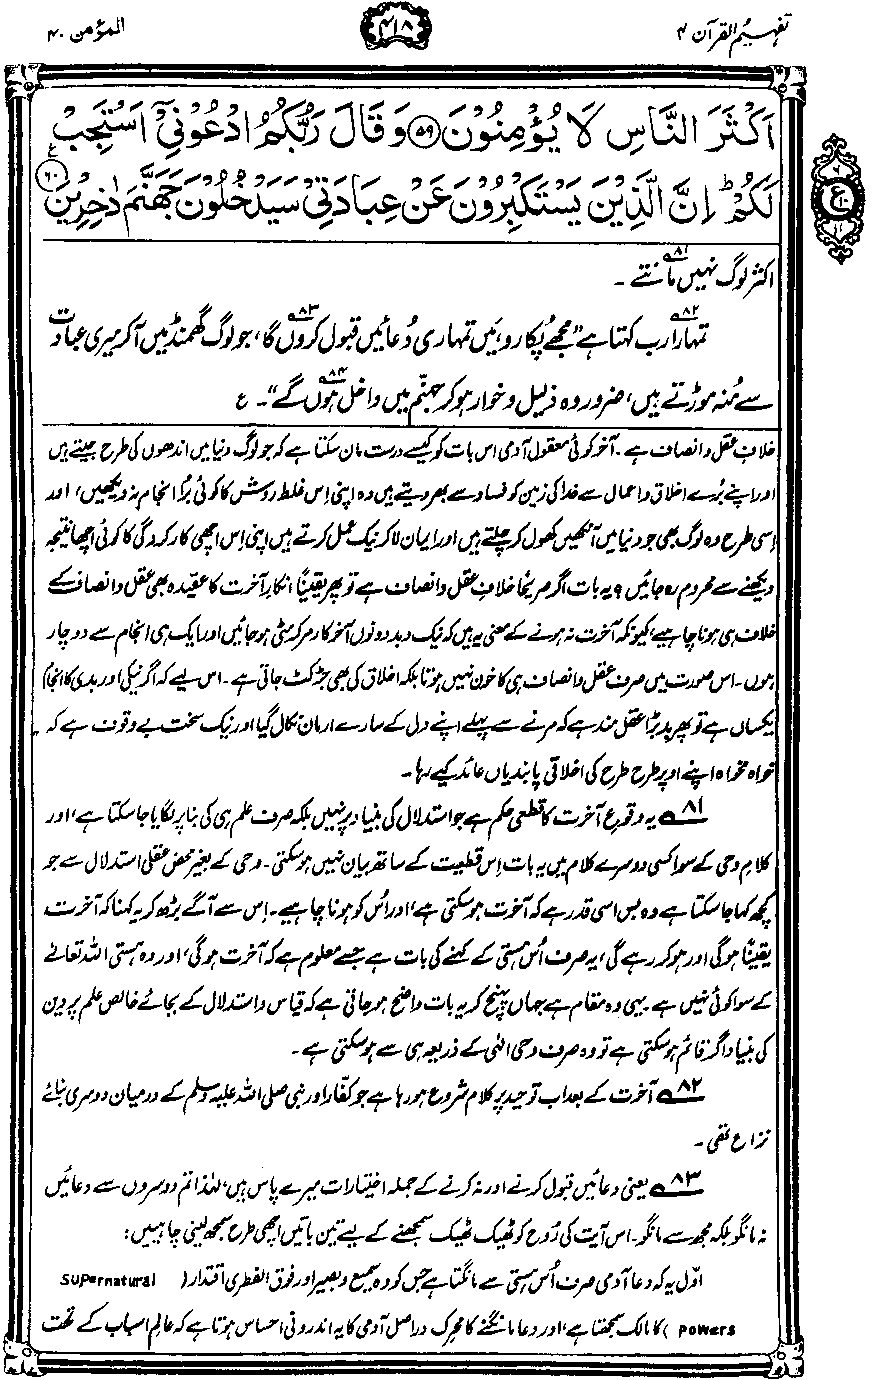 تفہیم القرآن ۴
۴۱۸
المؤمن ۴۰
اَكْثَرَ النَّاسِ لَا يُؤْمِنُوْنَ ﴿۵۹﴾ وَقَالَ رَبُّكُمُ ادْعُوْنِيْٓ اَسْتَجِبْ
لَكُمْ ؕ اِنَّ الَّذِيْنَ يَسْتَكْبِرُوْنَ عَنْ عِبَادَتِيْ سَيَدْخُلُوْنَ جَهَنَّمَ دٰخِرِيْنَ ﴿۶۰﴾ ع
۶
ع
۱۰
۱۱
اکثر لوگ نہیں مانتے۸۱۔
تمہارا۸۲ رب کہتا ہے ”مجھے پکارو، میں تمہاری دُعائیں قبول کروں گا۸۳، جو لوگ گھمنڈ میں آ کر میری عبادت
سے مُنہ موڑتے ہیں، ضرور وہ ذلیل و خوار ہو کر جہنّم میں داخل ہوں گے۸۴“۔ ع
خلافِ عقل و انصاف ہے۔ آخر کوئی معقول آدمی اس بات کو کیسے درست مان سکتا ہے کہ جو لوگ دنیا میں اندھوں کی طرح جیتے ہیں
اور اپنے بُرے اخلاق و اعمال سے خدا کی زمین کو فساد سے بھر دیتے ہیں وہ اپنی اس غلط روش کا کوئی بُرا انجام نہ دیکھیں، اور
اِسی طرح وہ لوگ بھی جو دنیا میں آنکھیں کھول کر چلتے ہیں اور ایمان لا کر نیک عمل کرتے ہیں اپنی اِس اچھی کارکردگی کا کوئی اچھا نتیجہ
دیکھنے سے محروم رہ جائیں؟ یہ بات اگر صریحًا خلافِ عقل و انصاف ہے تو پھر یقینًا انکارِ آخرت کا عقیدہ بھی عقل و انصاف کے
خلاف ہی ہونا چاہیے، کیونکہ آخرت نہ ہونے کے معنی یہ ہیں کہ نیک و بد دونوں آخرکار مر کر مٹی ہو جائیں اور ایک ہی انجام سے دوچار
ہوں۔ اس صورت میں صرف عقل و انصاف ہی کا خون نہیں ہوتا بلکہ اخلاق کی بھی جڑ کٹ جاتی ہے۔ اس لیے کہ اگر نیکی اور بدی کا انجام
یکساں ہے تو پھر بد بڑا عقل مند ہے کہ مرنے سے پہلے اپنے دل کے سارے ارمان نکال گیا اور نیک سخت بے وقوف ہے کہ
خواہ مخواہ اپنے اوپر طرح طرح کی اخلاقی پابندیاں عائد کیے رہا۔
۸۱ یہ وقوعِ آخرت کا قطعی حکم ہے جو استدلال کی بنیاد پر نہیں بلکہ صرف علم ہی کی بنا پر لگایا جا سکتا ہے، اور
کلامِ وحی کے سوا کسی دوسرے کلام میں یہ بات اِس قطعیت کے ساتھ بیان نہیں ہو سکتی۔ وحی کے بغیر محض عقلی استدلال سے جو
کچھ کہا جا سکتا ہے وہ بس اسی قدر ہے کہ آخرت ہو سکتی ہے، اور اُس کو ہونا چاہیے۔ اِس سے آگے بڑھ کر یہ کہنا کہ آخرت
یقینًا ہوگی اور ہو کر رہے گی، یہ صرف اُس ہستی کے کہنے کی بات ہے جسے معلوم ہے کہ آخرت ہوگی، اور وہ ہستی اللہ تعالےٰ
کے سوا کوئی نہیں ہے۔ یہی وہ مقام ہے جہاں پہنچ کر یہ بات واضح ہو جاتی ہے کہ قیاس و استدلال کے بجائے خالص علم پر دین
کی بنیاد اگر قائم ہو سکتی ہے تو وہ صرف وحی الٰہی کے ذریعہ ہی سے ہو سکتی ہے۔
۸۲ آخرت کے بعد اب توحید پر کلام شروع ہو رہا ہے جو کفّار اور نبی صلی اللہ علیہ وسلم کے درمیان دوسری بنائے
نزاع تھی۔
۸۳ یعنی دعائیں قبول کرنے اور نہ کرنے کے جملہ اختیارات میرے پاس ہیں، لہٰذا تم دوسروں سے دعائیں
نہ مانگو بلکہ مجھ سے مانگو۔ اس آیت کی رُوح کو ٹھیک ٹھیک سمجھنے کے لیے تین باتیں اچھی طرح سمجھ لینی چاہییں:
اوّل یہ کہ دعا آدمی صرف اُس ہستی سے مانگتا ہے جس کو وہ سمیع و بصیر اور فوق الفطری اقتدار (Supernatural
Powers) کا مالک سمجھتا ہے، اور دعا مانگنے کا محرک دراصل آدمی کا یہ اندرونی احساس ہوتا ہے کہ عالمِ اسباب کے تحت